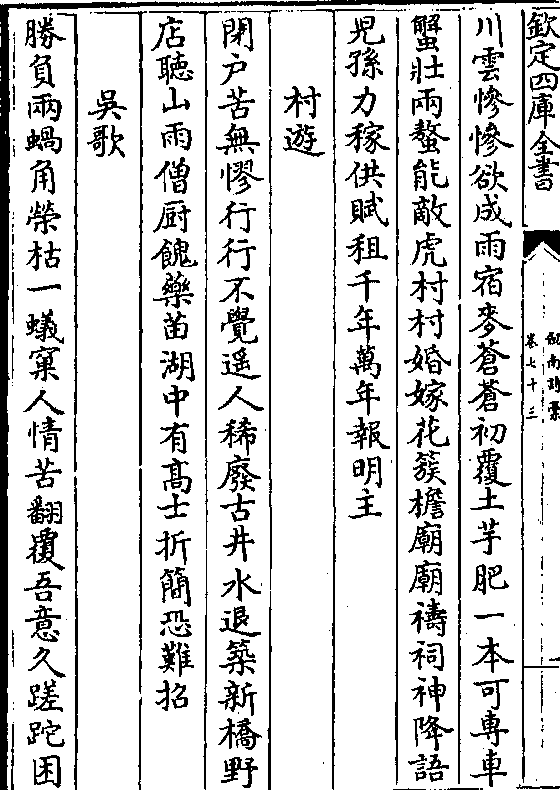 欽定四庫全書
劒南詩槀
卷七十三
川雲慘慘欲成雨宿麥蒼蒼初覆土芋肥一本可專車
蟹壯兩螯能敵虎村村婚嫁花簇檐廟廟禱祠神降語
兒孫力稼供賦租千年萬年報明主
村遊
閉戸苦無憀行行不覺遥人稀廢古井水退築新橋野
店聽山雨僧厨餽藥苗湖中有髙士折簡恐難招
吳歌
勝負兩蝸角榮枯一蟻窠人情苦翻覆吾意久蹉跎困